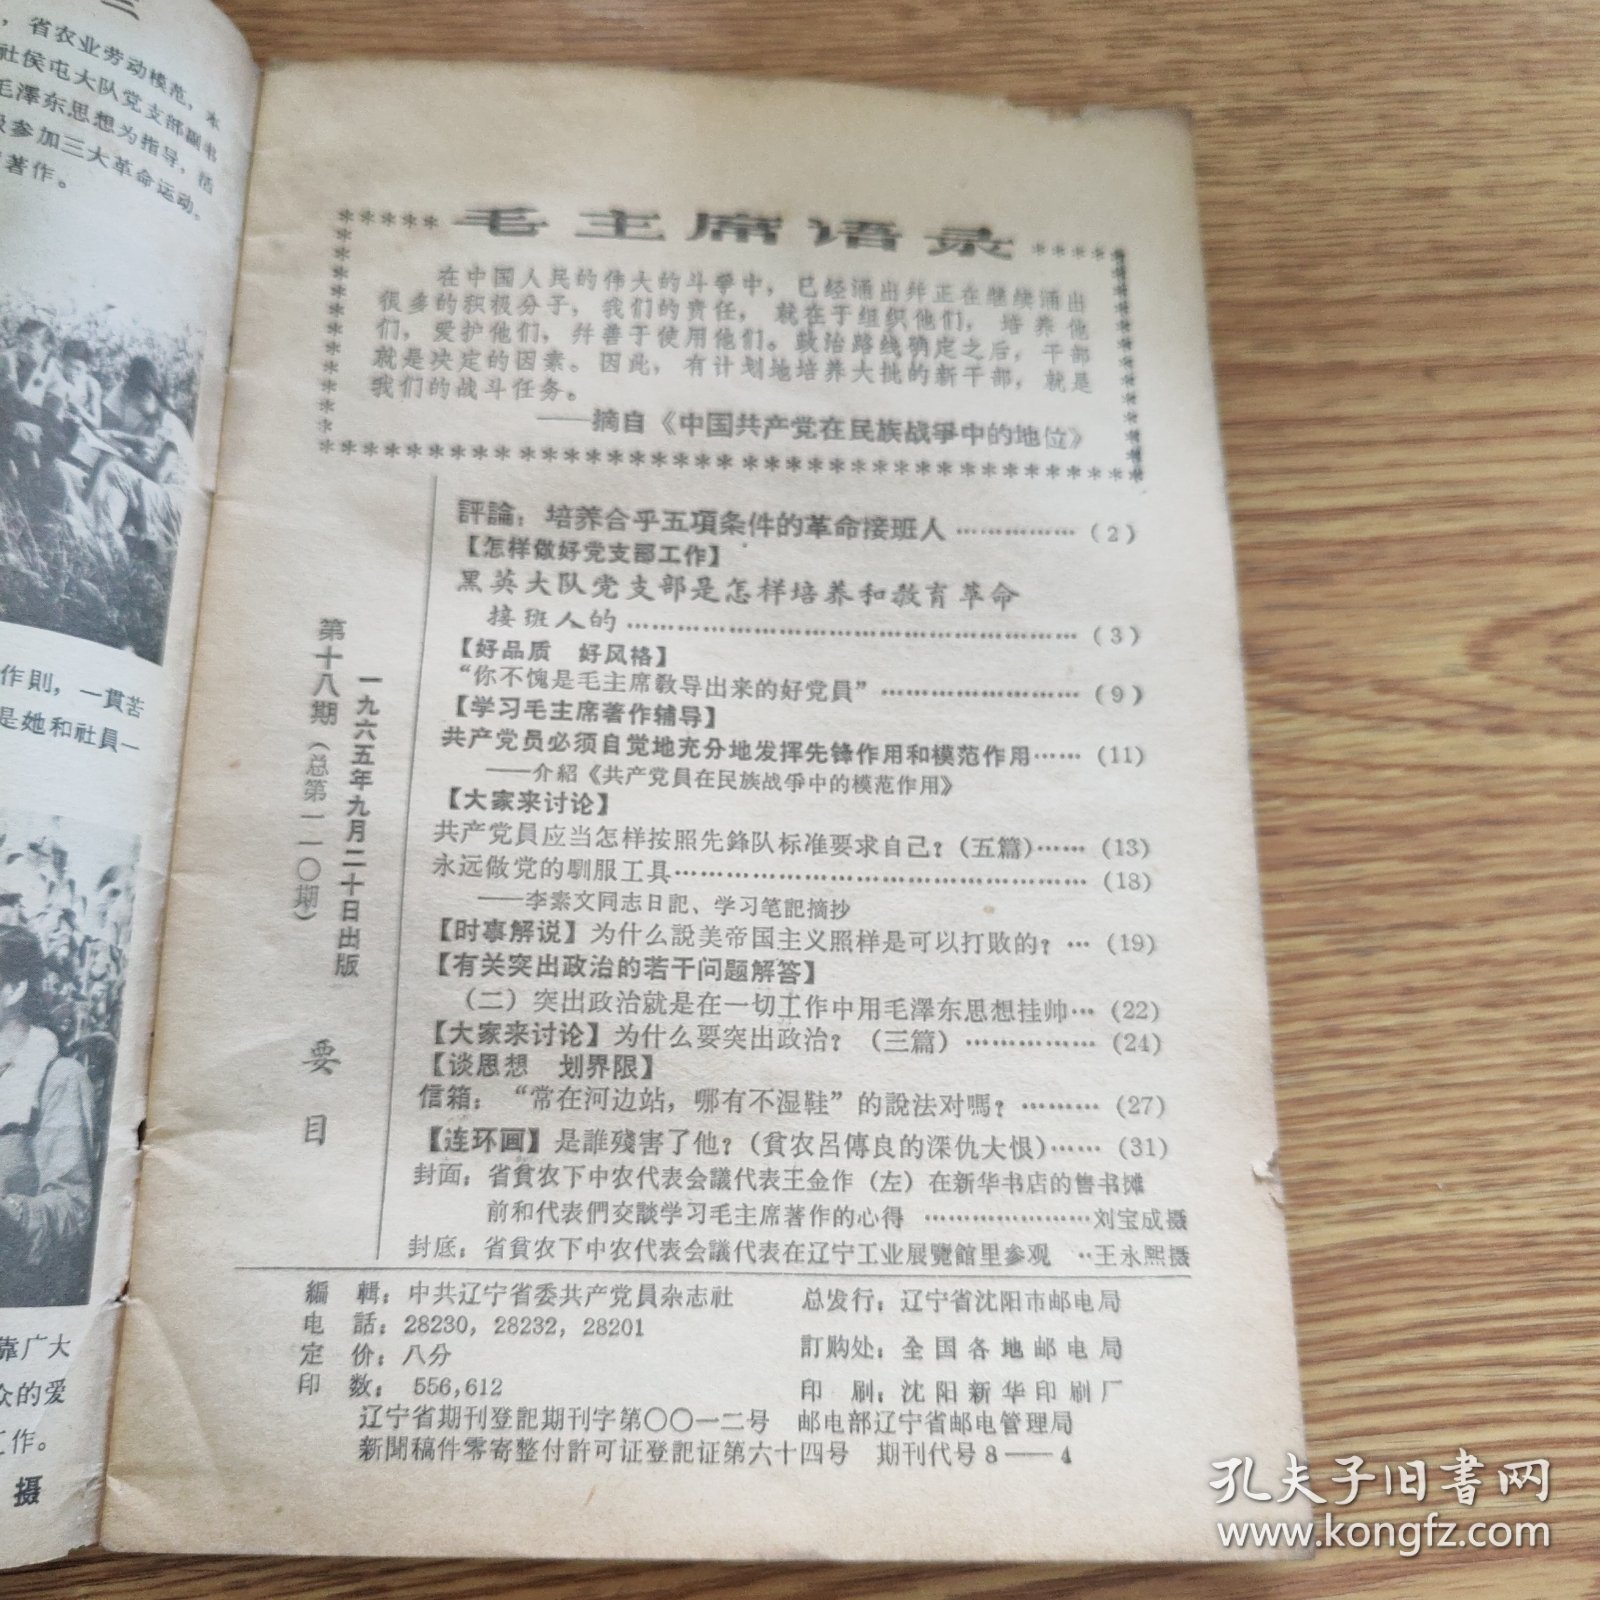 三
，省农业劳动模范，本
社侯屯大队党支部副书
毛澤东思想为指导，活
极参加三大革命运动，
著作。
作則，一貫苦
是她和社員一
靠广大
众的爱
工作。
摄
毛主席语录
在中国人民的伟大的斗爭中，已经涌出并正在继续涌出
很多的积极分子，我们的责任，就在于组织他们，培养他
们，爱护他们，并善于使用他们。政治路线确定之后，干部
就是决定的因素。因此，有计划地培养大批的新干部，就是
我们的战斗任务。
——摘自《中国共产党在民族战爭中的地位》
第十八期（总第一一〇期）
一九六五年九月二十日出版
要目
評論：培养合乎五項条件的革命接班人……………（2）
【怎样做好党支部工作】
黑英大队党支部是怎样培养和教育革命
接班人的……………………………………………（3）
【好品质　好风格】
“你不愧是毛主席教导出来的好党員”……………………（9）
【学习毛主席著作辅导】
共产党员必须自觉地充分地发挥先锋作用和模范作用……（11）
——介紹《共产党員在民族战爭中的模范作用》
【大家来讨论】
共产党員应当怎样按照先鋒队标准要求自己？（五篇）……（13）
永远做党的馴服工具…………………………………………（18）
——李素文同志日記、学习笔記摘抄
【时事解说】为什么說美帝国主义照样是可以打敗的？…（19）
【有关突出政治的若干问题解答】
（二）突出政治就是在一切工作中用毛澤东思想挂帅…（22）
【大家来讨论】为什么要突出政治？（三篇）……………（24）
【谈思想　划界限】
信箱：“常在河边站，哪有不湿鞋”的說法对嗎？………（27）
【连环画】是誰殘害了他？（貧农呂傳良的深仇大恨）……（31）
封面：省貧农下中农代表会議代表王金作（左）在新华书店的售书摊
前和代表們交談学习毛主席著作的心得…………………刘宝成摄
封底：省貧农下中农代表会議代表在辽宁工业展覽館里参观‥王永熙摄
編　輯：中共辽宁省委共产党員杂志社
电　話：28230，28232，28201
定　价：八分
印　数：556,612
总发行：辽宁省沈阳市邮电局
訂购处：全国各地邮电局
印　刷：沈阳新华印刷厂
辽宁省期刊登記期刊字第〇〇一二号　邮电部辽宁省邮电管理局
新聞稿件零寄整付許可证登記证第六十四号　期刊代号8——4
孔夫子旧书网
www.kongfz.com